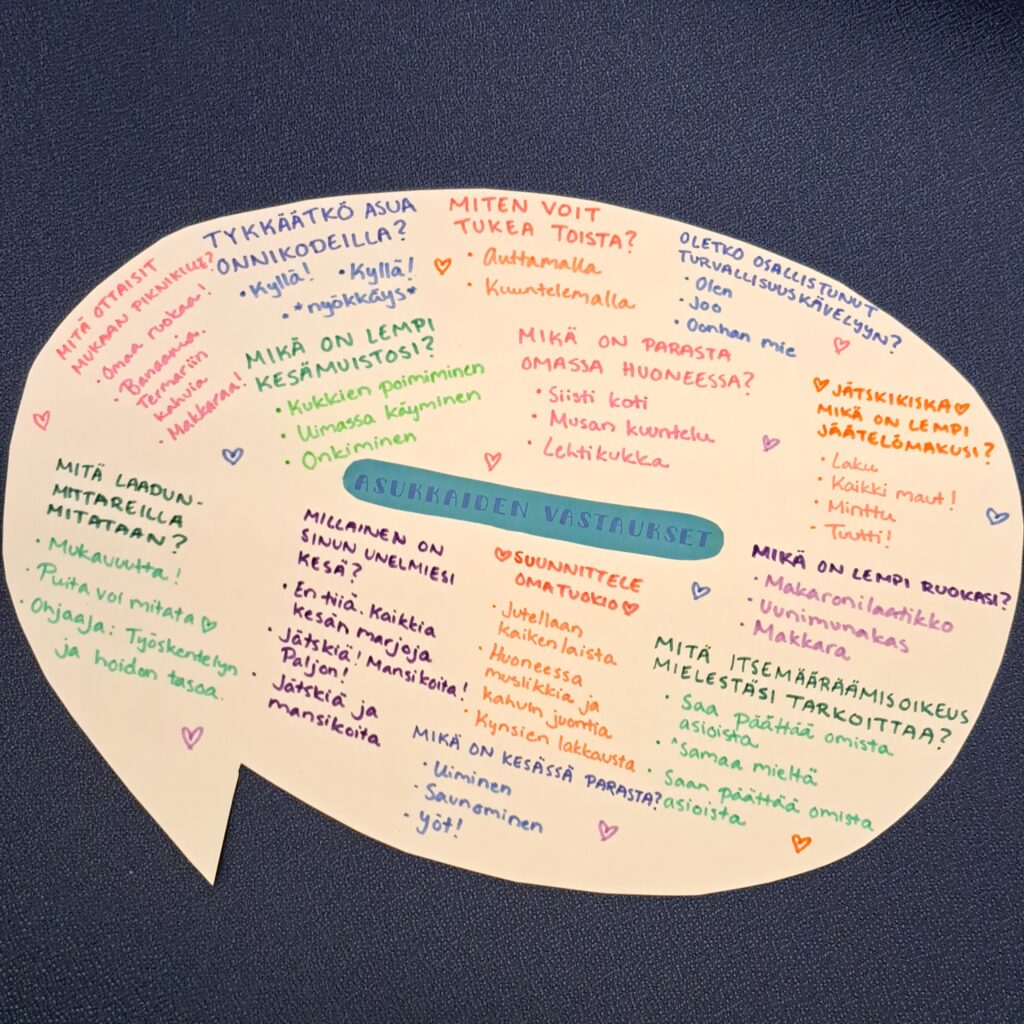 TYKKÄÄTKÖ ASUA
ONNIKODEILLA?
• Kyllä! • Kyllä!
• *nyökkäys*
MITEN VOIT
TUKEA TOISTA?
• Auttamalla
• Kuuntelemalla
OLETKO OSALLISTUNUT
TURVALLISUUSKÄVELYYN?
• Olen
• Joo
• Oonhan mie
MITÄ OTTAISIT
MUKAAN PIKNIKILLE?
• Omaa ruokaa!
• Banaania.
Termariin
kahvia
• Makkaraa!
MIKÄ ON LEMPI
KESÄMUISTOSI?
• Kukkien poimiminen
• Uimassa käyminen
• Onkiminen
MIKÄ ON PARASTA
OMASSA HUONEESSA?
• Siisti koti
• Musan kuuntelu
• Lehtikukka
♡ JÄTSKIKISKA ♡
MIKÄ ON LEMPI
JÄÄTELÖMAKUSI?
• Laku
• Kaikki maut!
• Minttu
• Tuutti!
ASUKKAIDEN VASTAUKSET
MITÄ LAADUN-
MITTAREILLA
MITATAAN?
• Mukavuutta!
• Puita voi mitata ♡
• Ohjaaja: Työskentelyn
ja hoidon tasoa.
MILLAINEN ON
SINUN UNELMIESI
KESÄ?
• En tiiä. Kaikkia
kesän marjoja
• Jätskiä! Mansikoita!
Paljon!
• Jätskiä ja
mansikoita
♡ SUUNNITTELE
OMATUOKIO ♡
• Jutellaan
kaikenlaista
• Huoneessa
musiikkia ja
kahvin juontia
• Kynsien lakkausta
MIKÄ ON LEMPI RUOKASI?
• Makaronilaatikko
• Uunimunakas
• Makkara
MITÄ ITSEMÄÄRÄÄMISOIKEUS
MIELESTÄSI TARKOITTAA?
• Saa päättää omista
asioista
• ^Samaa mieltä
• Saan päättää omista
asioista
MIKÄ ON KESÄSSÄ PARASTA?
• Uiminen
• Saunominen
• Yöt!